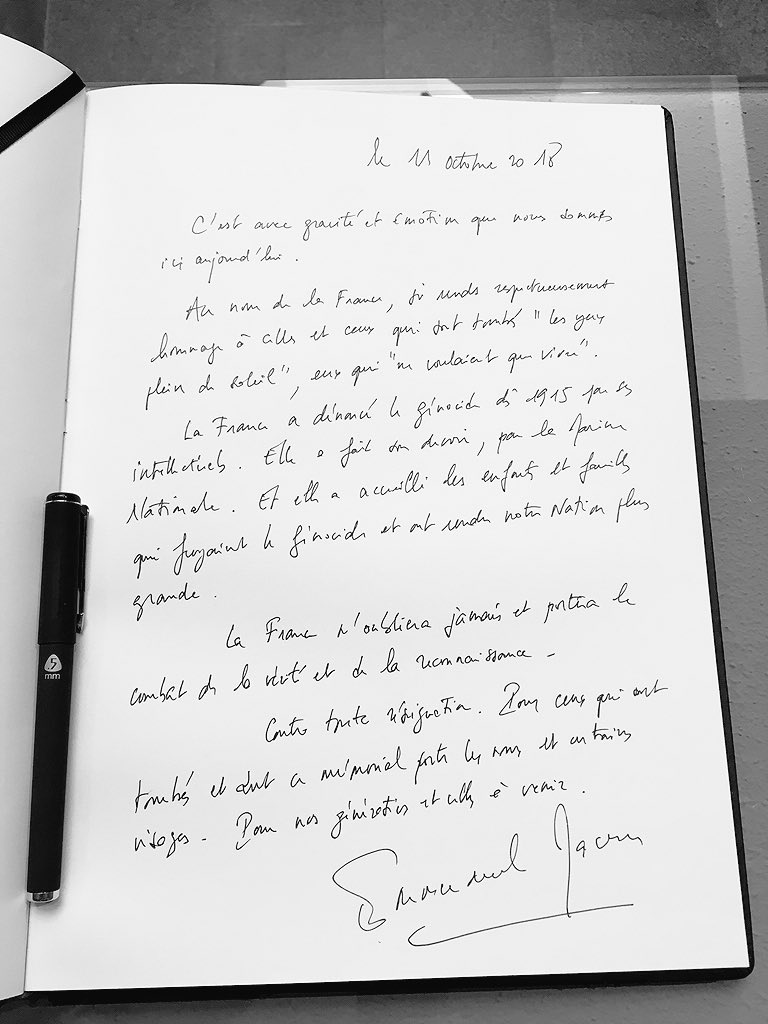 le 11 octobre 2018
C'est avec gravité et émotion que nous sommes
ici aujourd'hui.
Au nom de la France, je rends respectueusement
hommage à celles et ceux qui sont tombés "les yeux
plein de soleil", eux qui "ne voulaient que vivre".
La France a dénoncé le génocide dès 1915 par ses
intellectuels. Elle a fait son devoir, par la Marine
Nationale. Et elle a accueilli des enfants et familles
qui fuyaient le génocide et ont rendu notre Nation plus
grande.
La France n'oubliera jamais et portera le
combat de la vérité et de la reconnaissance -
Contre toute résignation. Pour ceux qui sont
tombés et dont ce mémorial porte les noms et certains
visages. Pour nos générations et celles à venir.
Emmanuel Macron
5
mm